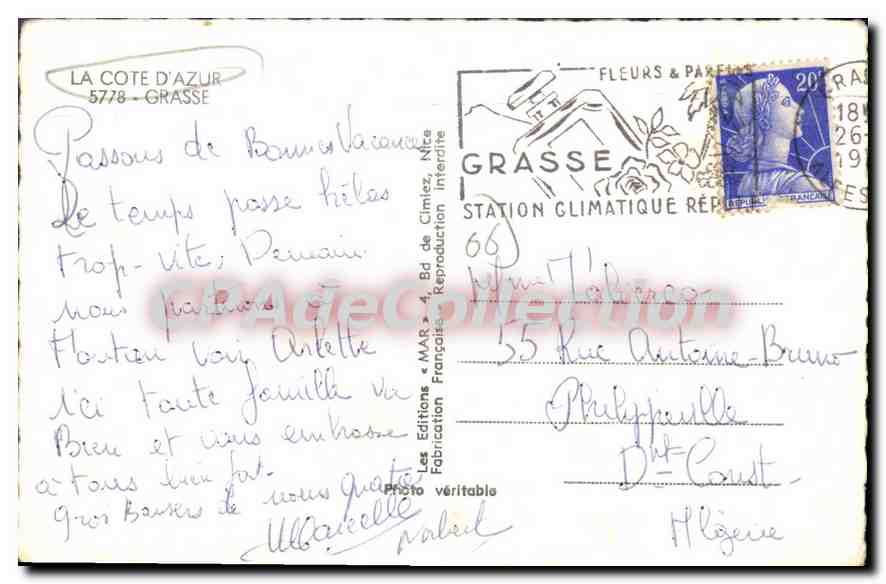 LA COTE D'AZUR
5778 - GRASSE
Passons de Bonnes Vacances
Le temps passe hélas
trop vite, Demain
nous partons à
voir Arlette
Ici toute famille va
Bien et vous embrasse
à tous bien fort.
Gros Baisers de nous quatre
Marcelle
Norbert
Les Editions « MAR » 4, Bd de Cimiez, Nice
Fabrication Française - Reproduction interdite
Photo véritable
FLEURS & PARFUMS
GRASSE
STATION CLIMATIQUE RÉP
20F
REPUBLIQUE FRANÇAISE
GRAS
18
26-
19
66
55 Rue Antoine-Bruno
Philippeville
Dpt Const
Algérie
CPAdeCollection